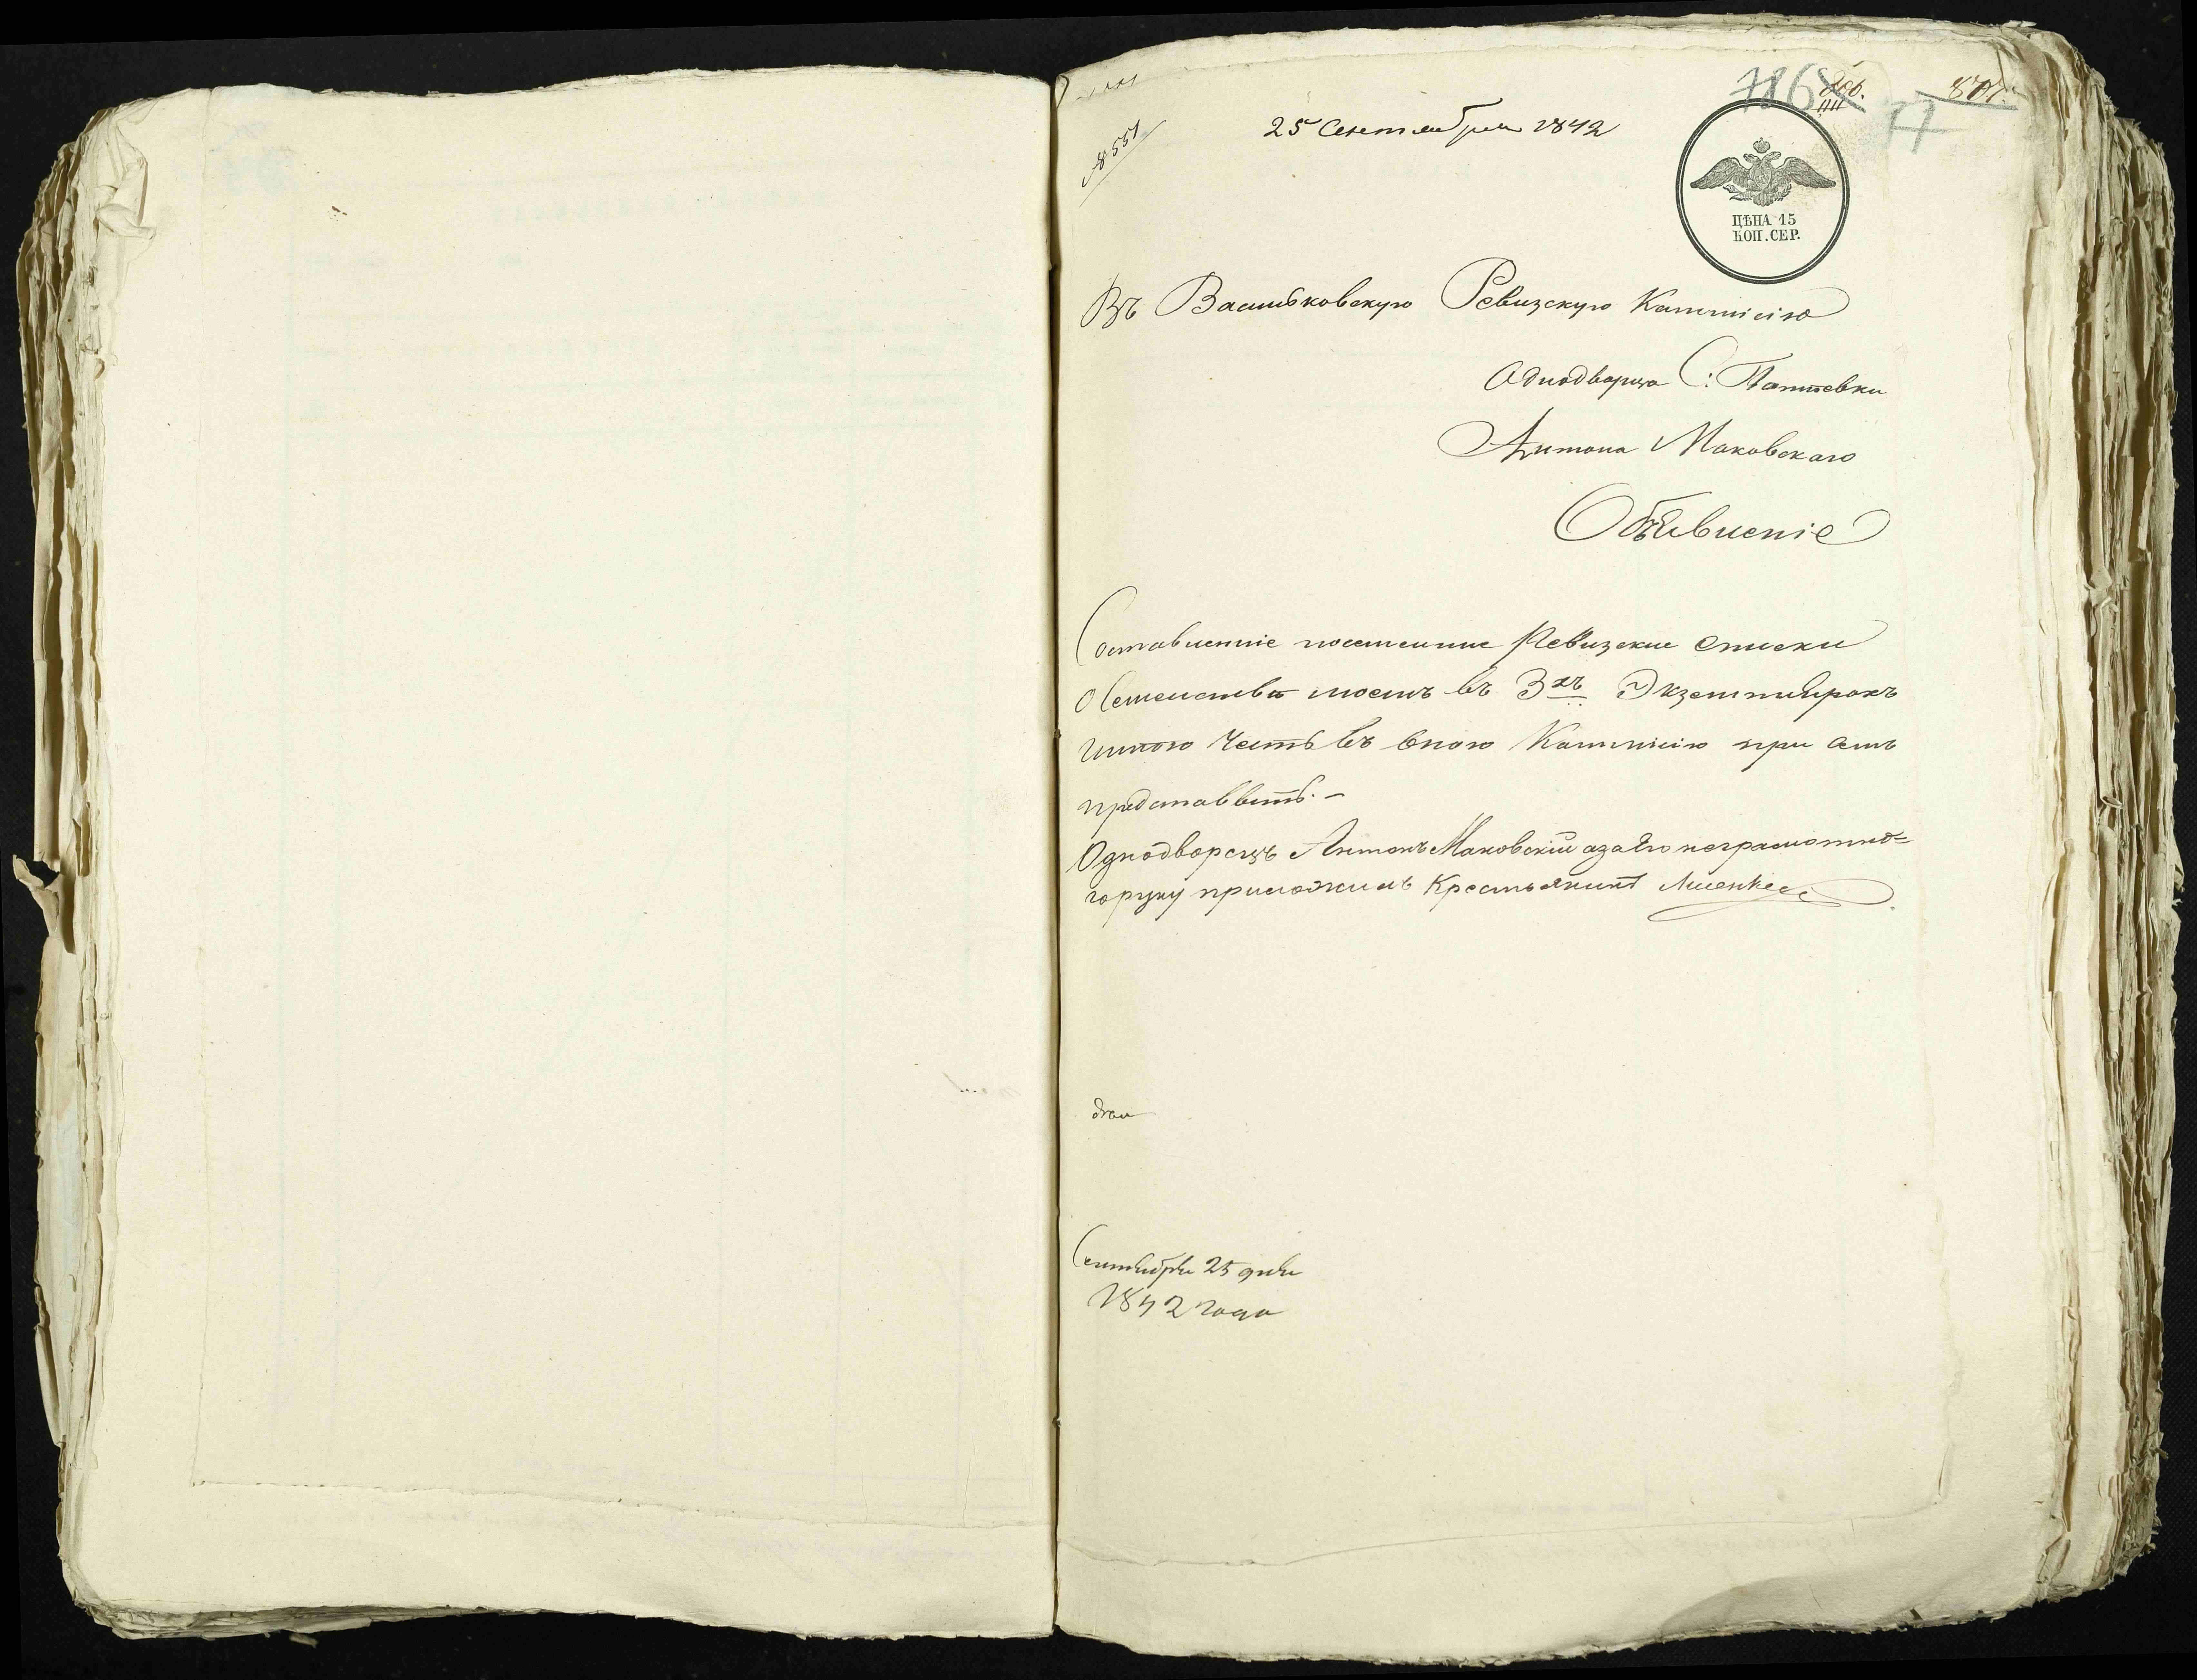 8551
25 Сентября 1842
806.
807.
77
ЦѢНА 15
КОП. СЕР.
Въ Васильковскую Ревизскую Каммисію
Однодворца С: Паттевки
Антона Маковскаго
Объявленіе
Составленніе посемейние Ревизскіе списки
О Семействе моемъ въ 3хъ Экземплярахъ
имею честь въ оною Каммисію при семъ
представить. –
Однодворецъ Антонъ Маковскій а за Его неграмотно=
го руку приложилъ Крестьянинъ
Сентября 25 дня
1842 года